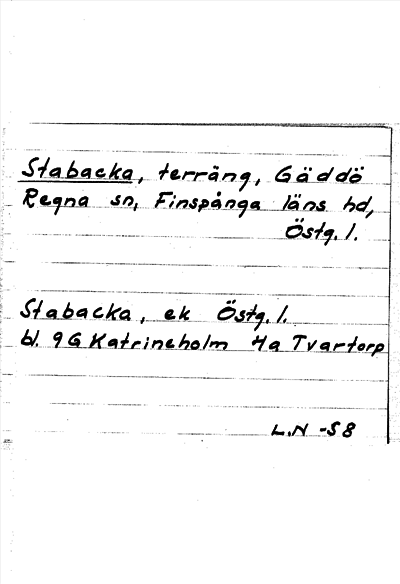 Stabacka, terräng, Gäddö
Regna sn, Finspånga läns hd,
Östg. l.
Stabacka, ek Östg. l.
bl. 9G Katrineholm 4a Tvartorp
L.N -58